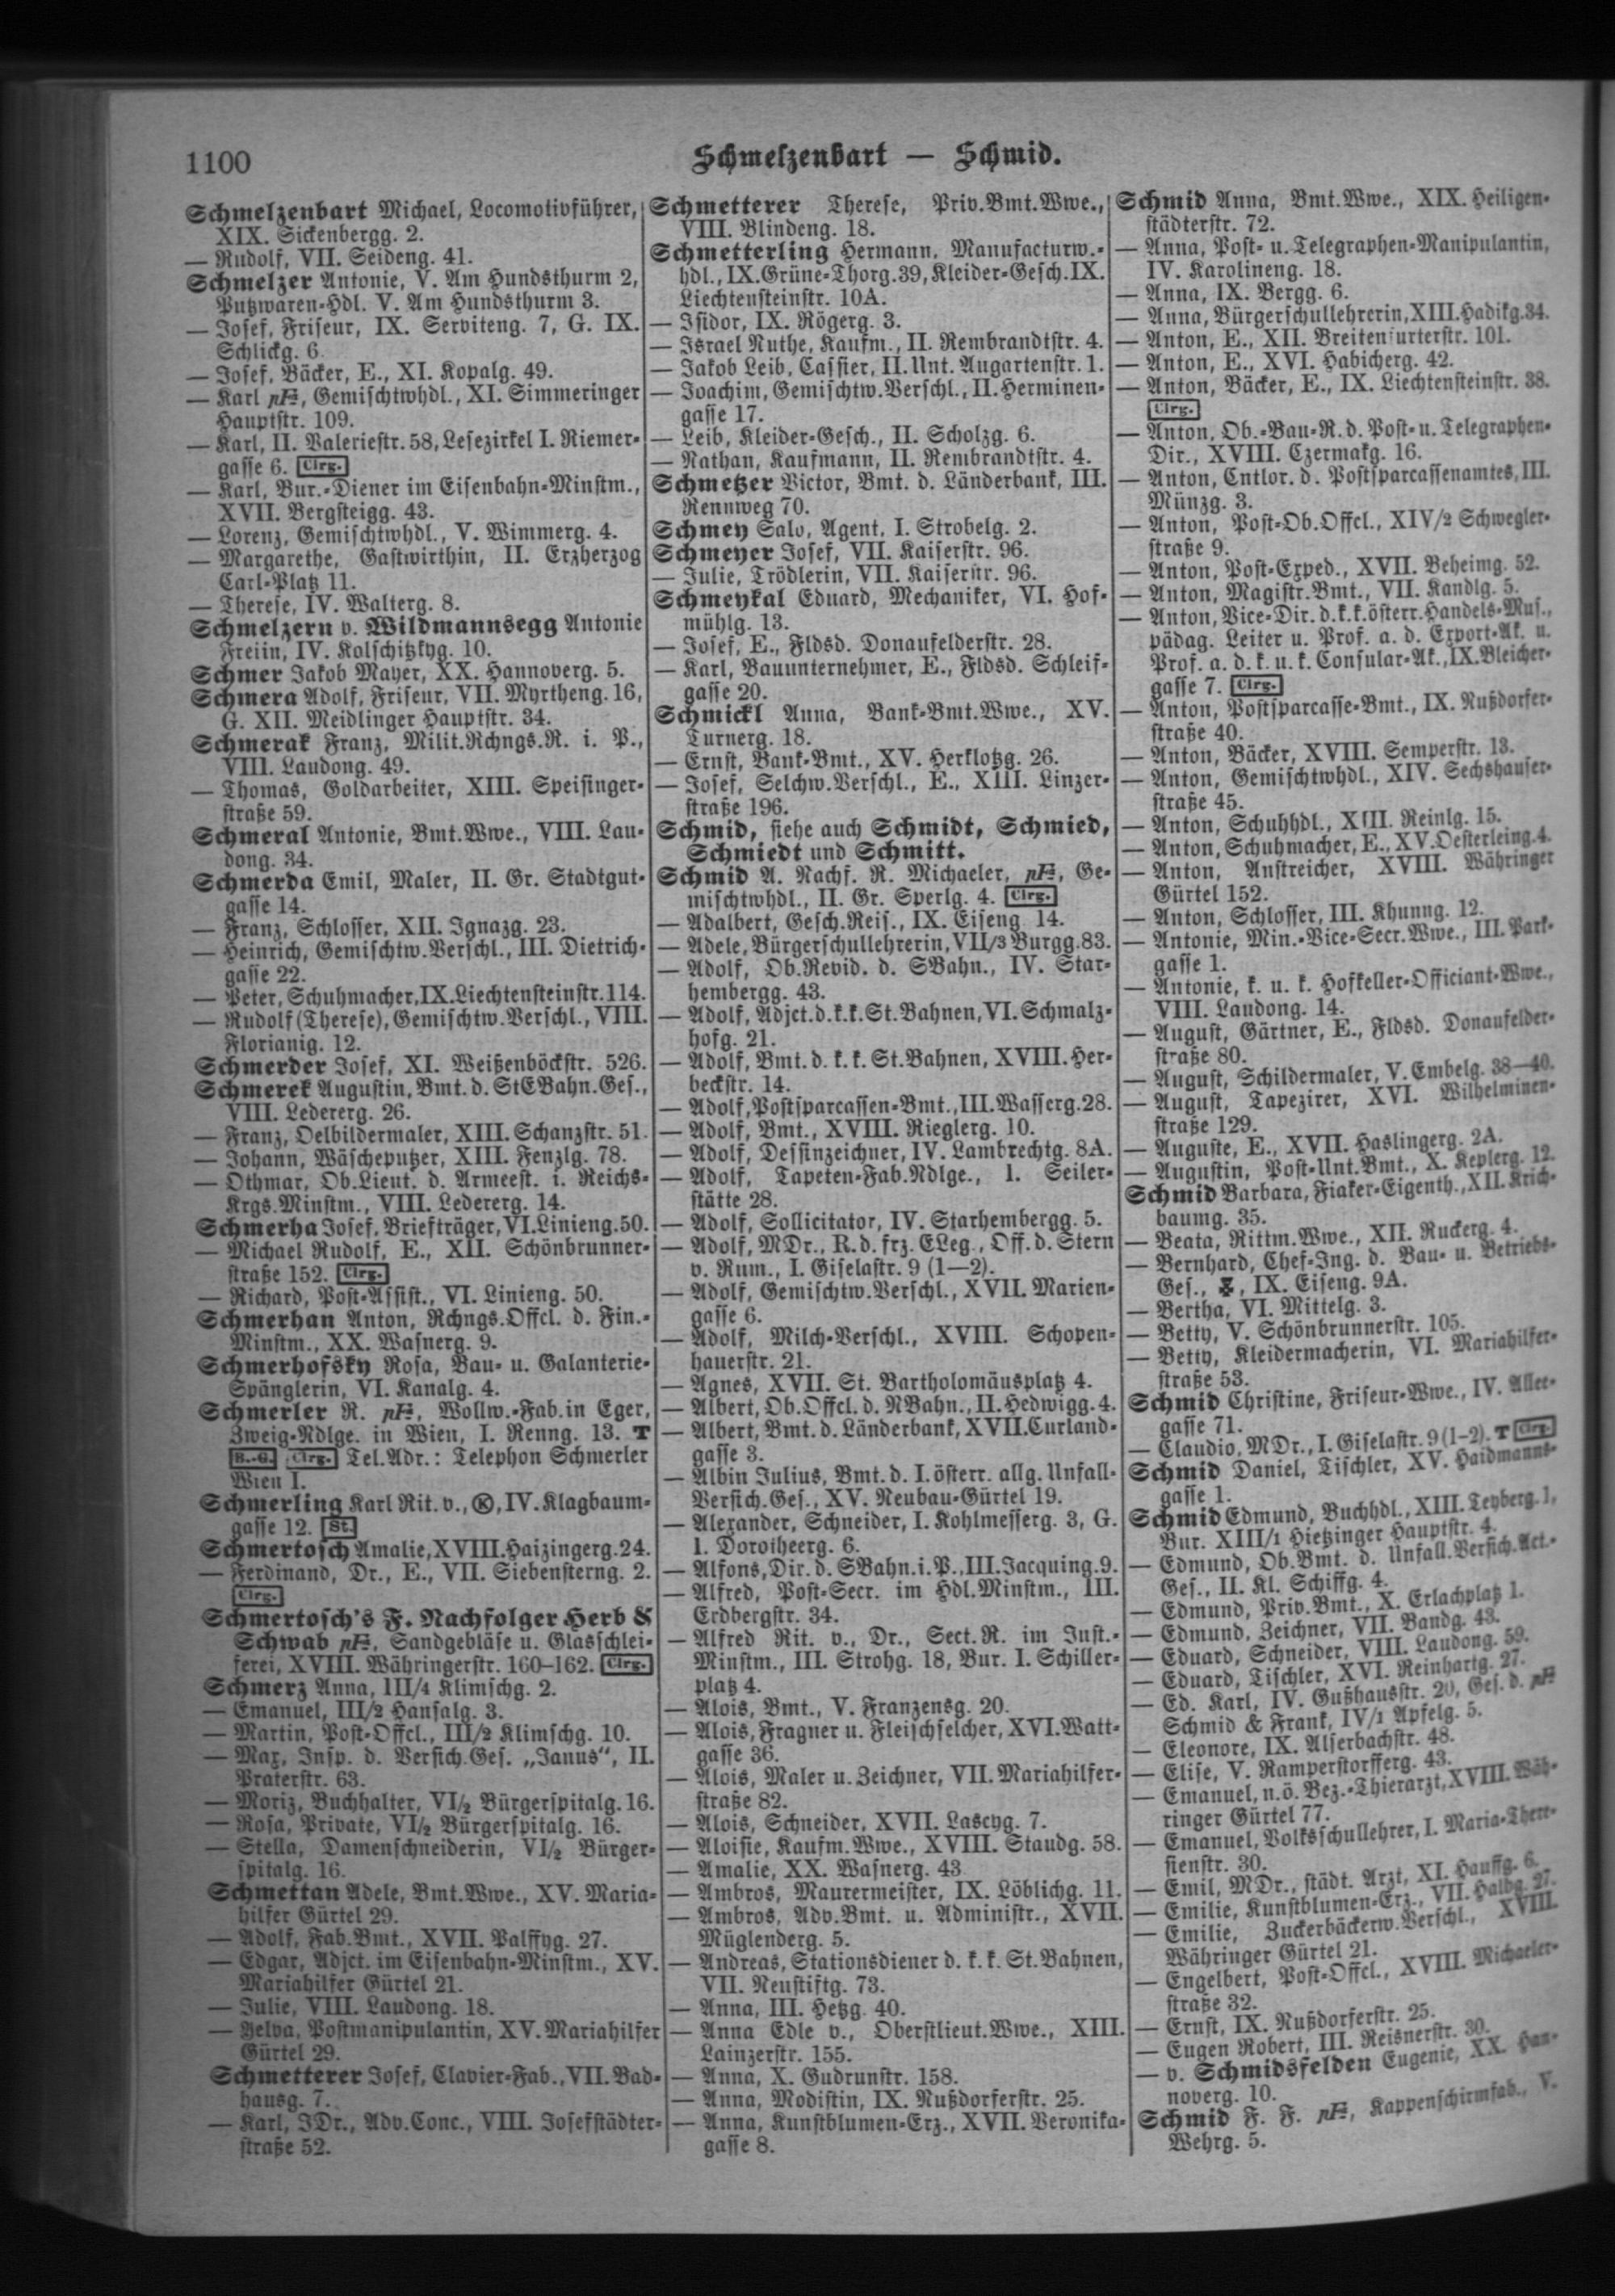 1100
Schmelzenbart — Schmid.
Schmelzenbart Michael, Locomotivführer,
XIX. Sickenbergg. 2.
— Rudolf, VII. Seideng. 41.
Schmelzer Antonie, V. Am Hundsthurm 2,
Putzwaren-Hdl. V. Am Hundsthurm 3.
— Josef, Friseur, IX. Serviteng. 7, G. IX.
Schlickg. 6.
— Josef, Bäcker, E., XI. Kopalg. 49.
— Karl pF, Gemischtwhdl., XI. Simmeringer
Hauptstr. 109.
— Karl, II. Valeriestr. 58, Lesezirkel I. Riemer-
gasse 6. Clrg.
— Karl, Bur.-Diener im Eisenbahn-Minstm.,
XVII. Bergsteigg. 43.
— Lorenz, Gemischtwhdl., V. Wimmerg. 4.
— Margarethe, Gastwirthin, II. Erzherzog
Carl-Platz 11.
— Therese, IV. Walterg. 8.
Schmelzern v. Wildmannsegg Antonie
Freiin, IV. Kolschitzkyg. 10.
Schmer Jakob Mayer, XX. Hannoverg. 5.
Schmera Adolf, Friseur, VII. Myrtheng. 16,
G. XII. Meidlinger Hauptstr. 34.
Schmerak Franz, Milit.Rchngs.R. i. P.,
VIII. Laudong. 49.
— Thomas, Goldarbeiter, XIII. Speisinger-
straße 59.
Schmeral Antonie, Bmt.Wwe., VIII. Lau-
dong. 34.
Schmerda Emil, Maler, II. Gr. Stadtgut-
gasse 14.
— Franz, Schlosser, XII. Ignazg. 23.
— Heinrich, Gemischtw.Verschl., III. Dietrich-
gasse 22.
— Peter, Schuhmacher, IX. Liechtensteinstr. 114.
— Rudolf (Therese), Gemischtw.Verschl., VIII.
Florianig. 12.
Schmerder Josef, XI. Weißenböckstr. 526.
Schmerek Augustin, Bmt. d. StEBahn.Ges.,
VIII. Ledererg. 26.
— Franz, Oelbildermaler, XIII. Schanzstr. 51.
— Johann, Wäscheputzer, XIII. Fenzlg. 78.
— Othmar, Ob.Lieut. d. Armeest. i. Reichs-
Krgs.Minstm., VIII. Ledererg. 14.
Schmerha Josef, Briefträger, VI. Linieng. 50.
— Michael Rudolf, E., XII. Schönbrunner-
straße 152. Clrg.
— Richard, Post-Assist., VI. Linieng. 50.
Schmerhan Anton, Rchngs.Offcl. d. Fin.-
Minstm., XX. Wasnerg. 9.
Schmerhofsky Rosa, Bau- u. Galanterie-
Spänglerin, VI. Kanalg. 4.
Schmerler R. pF, Wollw.-Fab. in Eger,
Zweig-Ndlge. in Wien, I. Renng. 13. T
B.-G. Clrg. Tel.Adr.: Telephon Schmerler
Wien I.
Schmerling Karl Rit. v., Ⓚ, IV. Klagbaum-
gasse 12. St.
Schmertosch Amalie, XVIII. Haizingerg. 24.
— Ferdinand, Dr., E., VII. Siebensterng. 2.
Clrg.
Schmertosch's F. Nachfolger Herb &
Schwab pF, Sandgebläse u. Glasschlei-
ferei, XVIII. Währingerstr. 160–162. Clrg.
Schmerz Anna, III/4 Klimschg. 2.
— Emanuel, III/2 Hansalg. 3.
— Martin, Post-Offcl., III/2 Klimschg. 10.
— Max, Insp. d. Versich.Ges. „Janus“, II.
Praterstr. 63.
— Moriz, Buchhalter, VI/2 Bürgerspitalg. 16.
— Rosa, Private, VI/2 Bürgerspitalg. 16.
— Stella, Damenschneiderin, VI/2 Bürger-
spitalg. 16.
Schmettan Adele, Bmt.Wwe., XV. Maria-
hilfer Gürtel 29.
— Adolf, Fab.Bmt., XVII. Palffyg. 27.
— Edgar, Adjct. im Eisenbahn-Minstm., XV.
Mariahilfer Gürtel 21.
— Julie, VIII. Laudong. 18.
— Yelva, Postmanipulantin, XV. Mariahilfer
Gürtel 29.
Schmetterer Josef, Clavier-Fab., VII. Bad-
hausg. 7.
— Karl, JDr., Adv.Conc., VIII. Josefstädter-
straße 52.
Schmetterer Therese, Priv.Bmt.Wwe.,
VIII. Blindeng. 18.
Schmetterling Hermann, Manufacturw.-
hdl., IX. Grüne-Thorg. 39, Kleider-Gesch. IX.
Liechtensteinstr. 10A.
— Isidor, IX. Rögerg. 3.
— Israel Nuthe, Kaufm., II. Rembrandtstr. 4.
— Jakob Leib, Cassier, II. Unt. Augartenstr. 1.
— Joachim, Gemischtw.Verschl., II. Herminen-
gasse 17.
— Leib, Kleider-Gesch., II. Scholzg. 6.
— Nathan, Kaufmann, II. Rembrandtstr. 4.
Schmetzer Victor, Bmt. d. Länderbank, III.
Rennweg 70.
Schmey Salo, Agent, I. Strobelg. 2.
Schmeyer Josef, VII. Kaiserstr. 96.
— Julie, Trödlerin, VII. Kaiserstr. 96.
Schmeykal Eduard, Mechaniker, VI. Hof-
mühlg. 13.
— Josef, E., Fldsd. Donaufelderstr. 28.
— Karl, Bauunternehmer, E., Fldsd. Schleif-
gasse 20.
Schmickl Anna, Bank-Bmt.Wwe., XV.
Turnerg. 18.
— Ernst, Bank-Bmt., XV. Herklotzg. 26.
— Josef, Selchw.Verschl., E., XIII. Linzer-
straße 196.
Schmid, siehe auch Schmidt, Schmied,
Schmiedt und Schmitt.
Schmid A. Nachf. R. Michaeler, pF, Ge-
mischtwhdl., II. Gr. Sperlg. 4. Clrg.
— Adalbert, Gesch.Reis., IX. Eiseng. 14.
— Adele, Bürgerschullehrerin, VII/3 Burgg. 83.
— Adolf, Ob.Revid. d. SBahn., IV. Star-
hembergg. 43.
— Adolf, Adjct. d. k. k. St.Bahnen, VI. Schmalz-
hofg. 21.
— Adolf, Bmt. d. k. k. St.Bahnen, XVIII. Her-
beckstr. 14.
— Adolf, Postsparcassen-Bmt., III. Wasserg. 28.
— Adolf, Bmt., XVIII. Rieglerg. 10.
— Adolf, Dessinzeichner, IV. Lambrechtg. 8A.
— Adolf, Tapeten-Fab.Ndlge., I. Seiler-
stätte 28.
— Adolf, Sollicitator, IV. Starhembergg. 5.
— Adolf, MDr., R. d. frz. ELeg., Off. d. Stern
v. Rum., I. Giselastr. 9 (1—2).
— Adolf, Gemischtw.Verschl., XVII. Marien-
gasse 6.
— Adolf, Milch-Verschl., XVIII. Schopen-
hauerstr. 21.
— Agnes, XVII. St. Bartholomäusplatz 4.
— Albert, Ob.Offcl. d. NBahn., II. Hedwigg. 4.
— Albert, Bmt. d. Länderbank, XVII. Curland-
gasse 3.
— Albin Julius, Bmt. d. I. österr. allg. Unfall-
Versich.Ges., XV. Neubau-Gürtel 19.
— Alexander, Schneider, I. Kohlmesserg. 3, G.
I. Dorotheerg. 6.
— Alfons, Dir. d. SBahn. i. P., III. Jacquing. 9.
— Alfred, Post-Secr. im Hdl.Minstm., III.
Erdbergstr. 34.
— Alfred Rit. v., Dr., Sect. R. im Just.-
Minstm., III. Strohg. 18, Bur. I. Schiller-
platz 4.
— Alois, Bmt., V. Franzensg. 20.
— Alois, Fragner u. Fleischselcher, XVI. Watt-
gasse 36.
— Alois, Maler u. Zeichner, VII. Mariahilfer-
straße 82.
— Alois, Schneider, XVII. Lascyg. 7.
— Aloisie, Kaufm.Wwe., XVIII. Staudg. 58.
— Amalie, XX. Wasnerg. 43
— Ambros, Maurermeister, IX. Löblichg. 11.
— Ambros, Adv.Bmt. u. Administr., XVII.
Müglenderg. 5.
— Andreas, Stationsdiener d. k. k. St.Bahnen,
VII. Neustiftg. 73.
— Anna, III. Hetzg. 40.
— Anna Edle v., Oberstlieut.Wwe., XIII.
Lainzerstr. 155.
— Anna, X. Gudrunstr. 158.
— Anna, Modistin, IX. Nußdorferstr. 25.
— Anna, Kunstblumen-Erz., XVII. Veronika-
gasse 8.
Schmid Anna, Bmt.Wwe., XIX. Heiligen-
städterstr. 72.
— Anna, Post- u. Telegraphen-Manipulantin,
IV. Karolineng. 18.
— Anna, IX. Bergg. 6.
— Anna, Bürgerschullehrerin, XIII. Hadikg. 34.
— Anton, E., XII. Breitenfurterstr. 101.
— Anton, E., XVI. Habicherg. 42.
— Anton, Bäcker, E., IX. Liechtensteinstr. 38.
Clrg.
— Anton, Ob.-Bau-R. d. Post- u. Telegraphen-
Dir., XVIII. Czermakg. 16.
— Anton, Cntlor. d. Postsparcassenamtes, III.
Münzg. 3.
— Anton, Post-Ob.Offcl., XIV/2 Schwegler-
straße 9.
— Anton, Post-Exped., XVII. Beheimg. 52.
— Anton, Magistr.Bmt., VII. Kandlg. 5.
— Anton, Vice-Dir. d. k. k. österr. Handels-Mus.,
pädag. Leiter u. Prof. a. d. Export-Ak. u.
Prof. a. d. k. u. k. Consular-Ak., IX. Bleicher-
gasse 7. Clrg.
— Anton, Postsparcasse-Bmt., IX. Nußdorfer-
straße 40.
— Anton, Bäcker, XVIII. Semperstr. 13.
— Anton, Gemischtwhdl., XIV. Sechshauser-
straße 45.
— Anton, Schuhhdl., XIII. Reinlg. 15.
— Anton, Schuhmacher, E., XV. Oesterleing. 4.
— Anton, Anstreicher, XVIII. Währinger
Gürtel 152.
— Anton, Schlosser, III. Khunng. 12.
— Antonie, Min.-Vice-Secr.Wwe., III. Park-
gasse 1.
— Antonie, k. u. k. Hofkeller-Officiant-Wwe.,
VIII. Laudong. 14.
— August, Gärtner, E., Fldsd. Donaufelder-
straße 80.
— August, Schildermaler, V. Embelg. 38—40.
— August, Tapezirer, XVI. Wilhelminen-
straße 129.
— Auguste, E., XVII. Haslingerg. 2A.
— Augustin, Post-Unt.Bmt., X. Keplerg. 12.
Schmid Barbara, Fiaker-Eigenth., XII. Krich-
baumg. 35.
— Beata, Rittm.Wwe., XII. Ruckerg. 4.
— Bernhard, Chef-Ing. d. Bau- u. Betriebs-
Ges., IX. Eiseng. 9A.
— Bertha, VI. Mittelg. 3.
— Betty, V. Schönbrunnerstr. 105.
— Betty, Kleidermacherin, VI. Mariahilfer-
straße 53.
Schmid Christine, Friseur-Wwe., IV. Allee-
gasse 71.
— Claudio, MDr., I. Giselastr. 9 (1–2). T Clrg.
Schmid Daniel, Tischler, XV. Haidmanns-
gasse 1.
Schmid Edmund, Buchhdl., XIII. Teyberg. 1,
Bur. XIII/1 Hietzinger Hauptstr. 4.
— Edmund, Ob.Bmt. d. Unfall.Versich.Act.-
Ges., II. Kl. Schiffg. 4.
— Edmund, Priv.Bmt., X. Erlachplatz 1.
— Edmund, Zeichner, VII. Bandg. 43.
— Eduard, Schneider, VIII. Laudong. 59.
— Eduard, Tischler, XVI. Reinhartg. 27.
— Ed. Karl, IV. Gußhausstr. 20, Ges. d. pF
Schmid & Frank, IV/1 Apfelg. 5.
— Eleonore, IX. Alserbachstr. 48.
— Elise, V. Ramperstorfferg. 43.
— Emanuel, n. ö. Bez.-Thierarzt, XVIII. Wäh-
ringer Gürtel 77.
— Emanuel, Volksschullehrer, I. Maria-There-
sienstr. 30.
— Emil, MDr., städt. Arzt, XI. Hauffg. 6.
— Emilie, Kunstblumen-Erz., VII. Halbg. 27.
— Emilie, Zuckerbäckerw.Verschl., XVIII.
Währinger Gürtel 21.
— Engelbert, Post-Offcl., XVIII. Michaeler-
straße 32.
— Ernst, IX. Nußdorferstr. 25.
— Eugen Robert, III. Reisnerstr. 30.
— v. Schmidsfelden Eugenie, XX. Han-
noverg. 10.
Schmid F. F. pF, Kappenschirmfab., V.
Wehrg. 5.